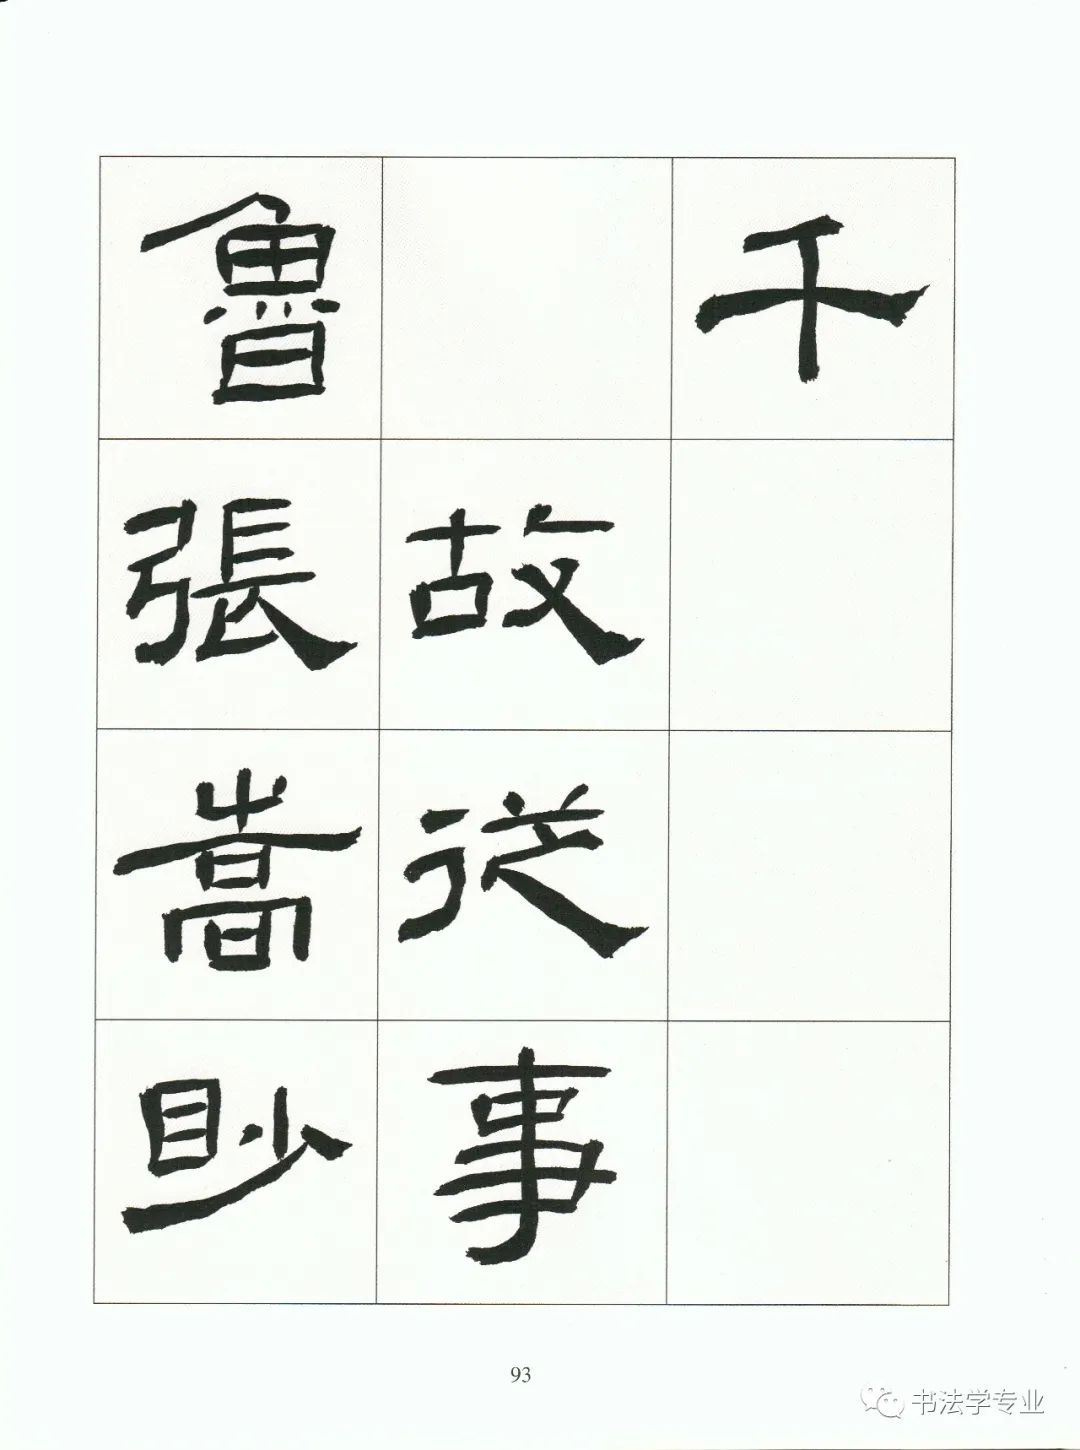 千
故從事
魯張嵩眇
93
书法学专业